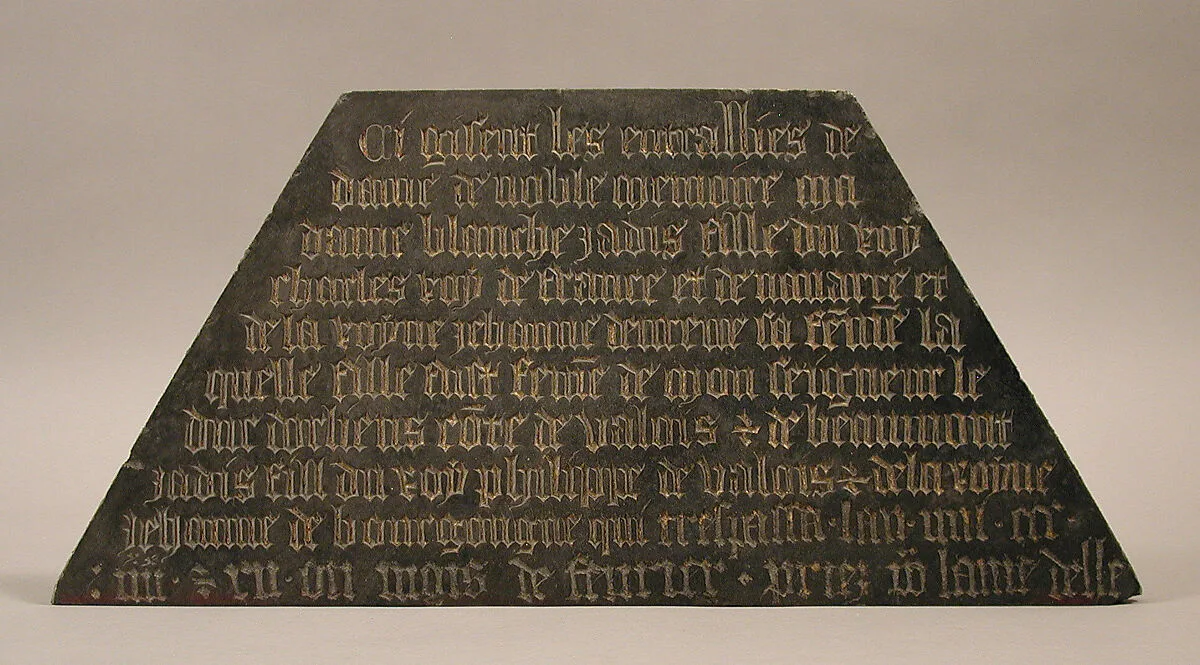 Ci gisent les entrallies de
dame de noble memoire ma
dame blanche jadis fille du roy
charles roy de france et de navarre et
de la royne jehanne deureux sa fēme la
quelle fille fust femē de mon seigneur le
duc dorliens cōte de valois & de beaumont
jadis fill du roy philippe de valois & de la royne
jehanne de bourgongne qui trespassa · lan · mil · ccc ·
· iiii · xx xii · ou mois de feurier · priez po lame delle